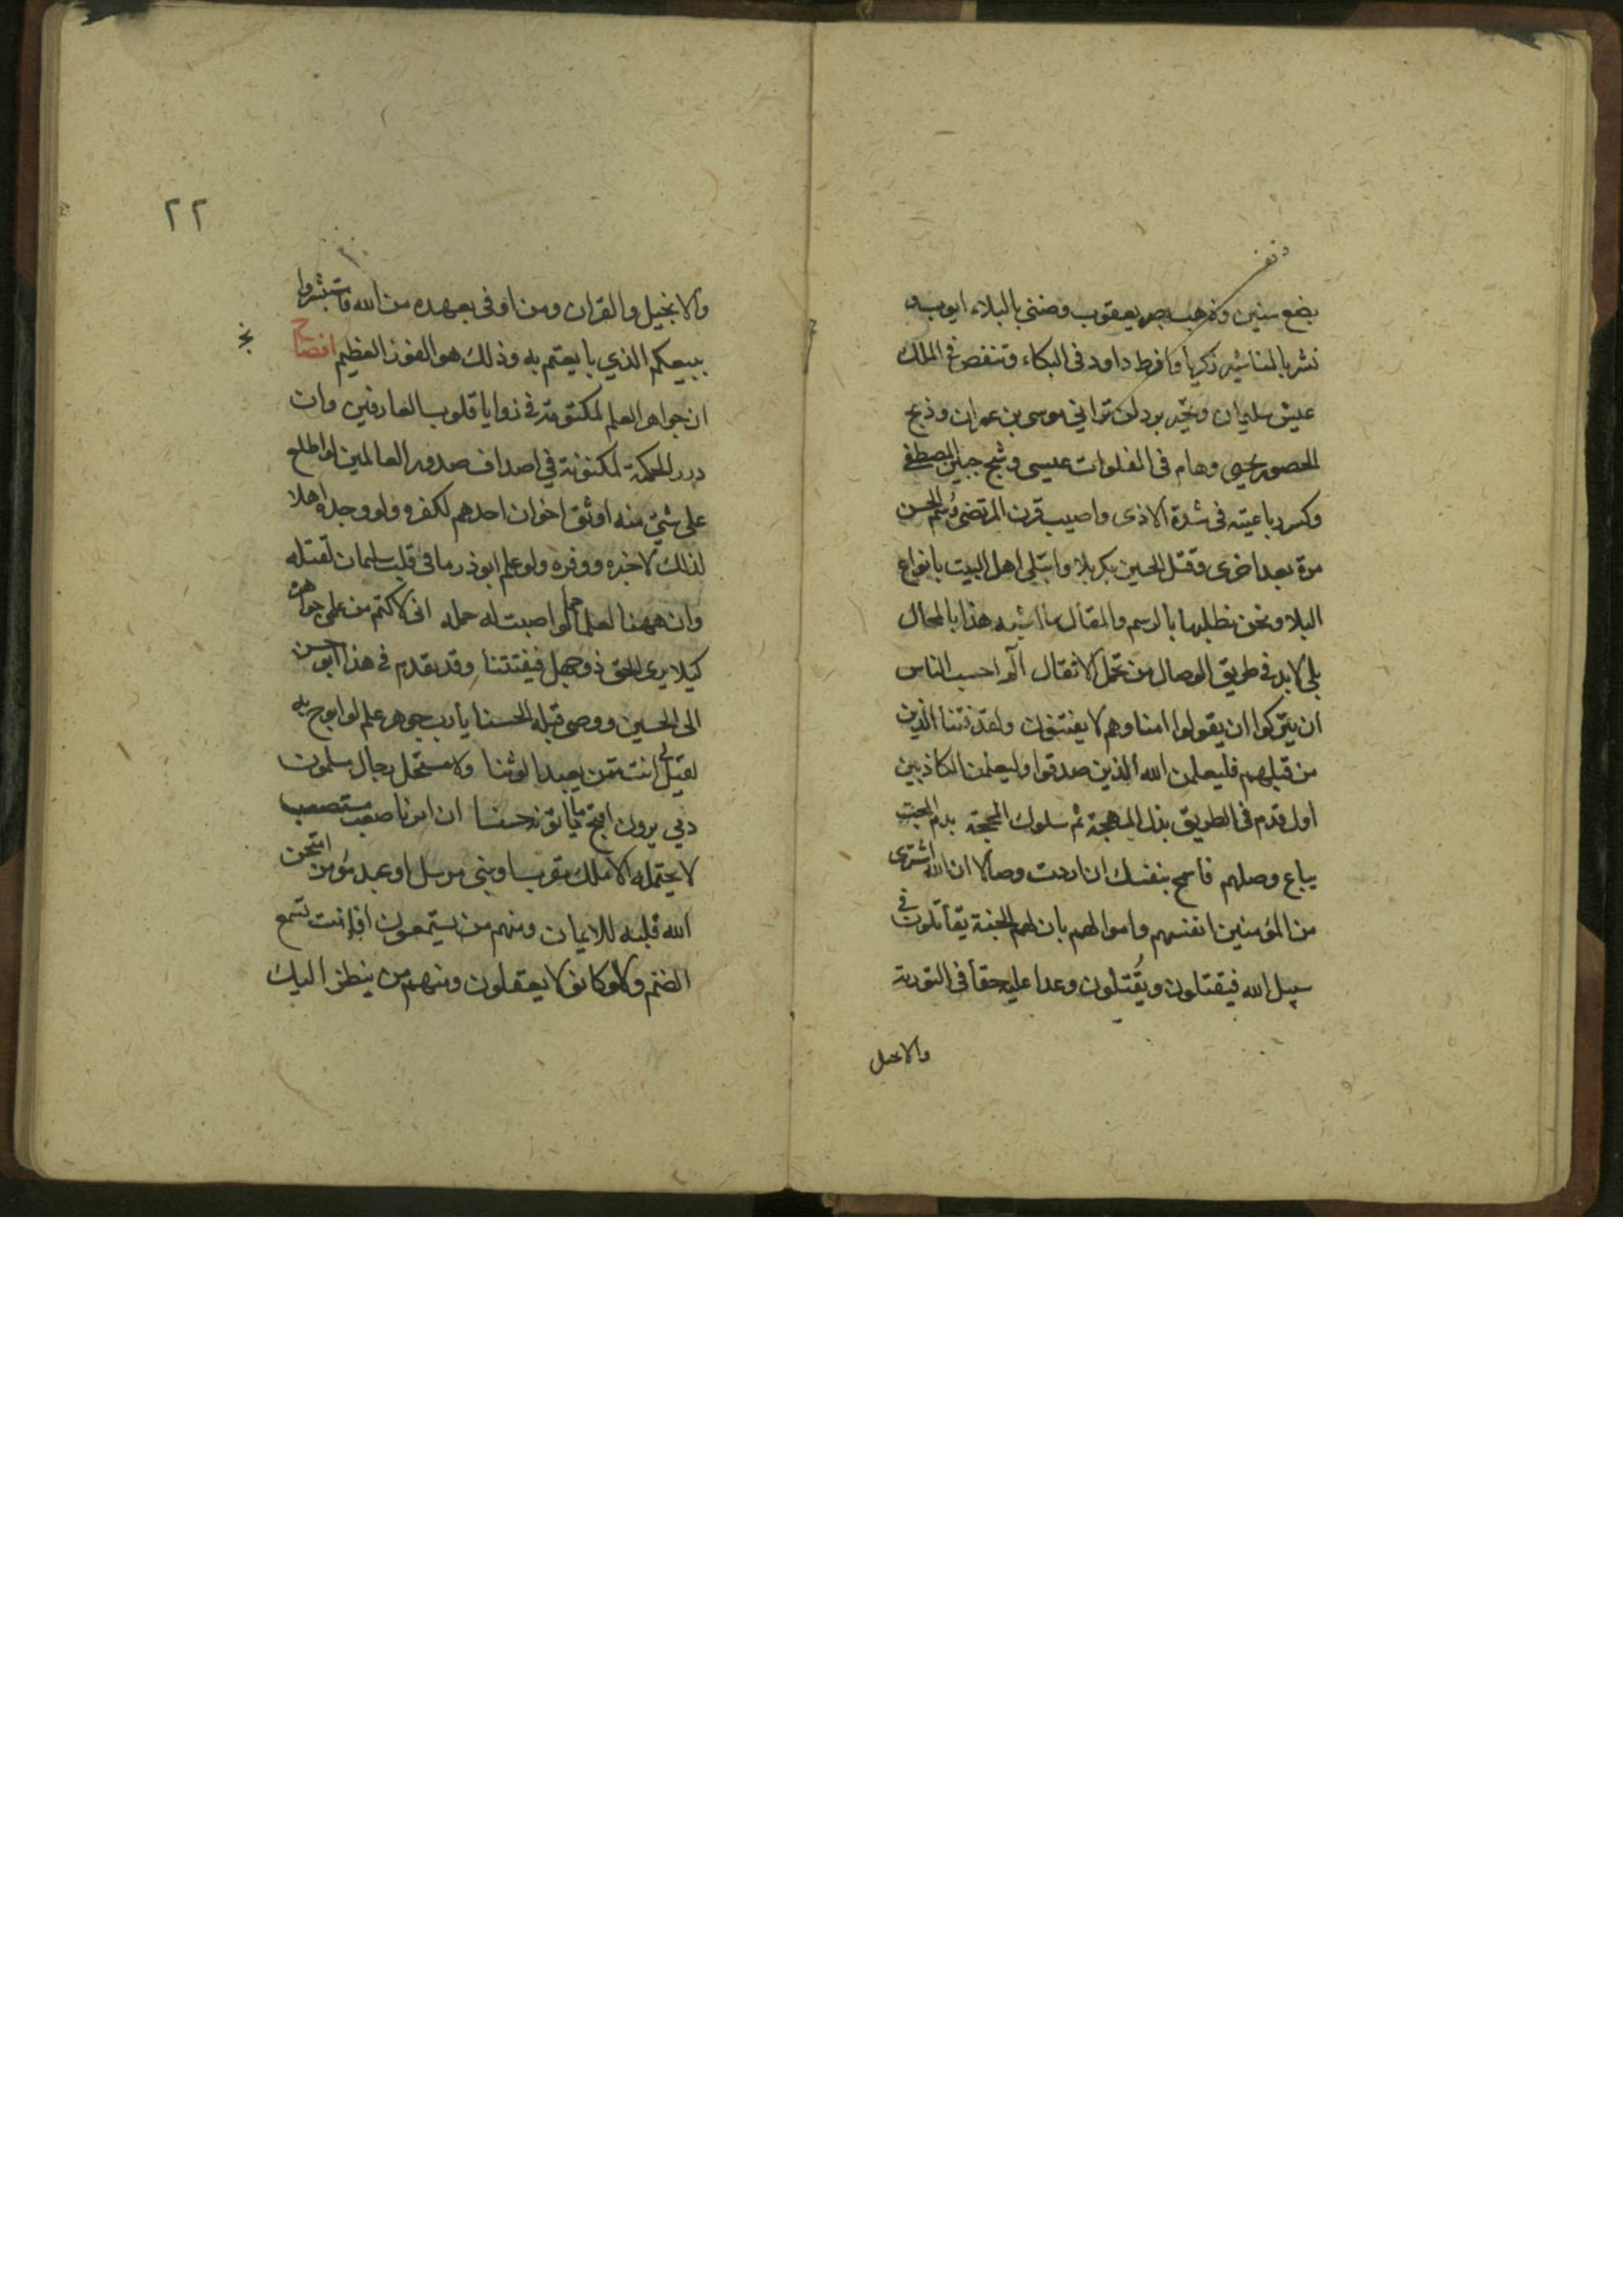 بضع سنين وذهب بصر يعقوب وضنى بالبلاء ايوب و
نشر بالمناشير زكريا وافرط داود فى البكاء وتنغص فى الملك
عيش سليمان وتحير برد لن ترانى موسى بن عمران وذبح
الحصور يحيى وهام فى الفلوات عيسى وشج جبين المصطفى
وكسر رباعيته فى شدة الاذى واصيب قرن المرتضى وسُم الحسن
مرة بعد اخرى وقتل الحسين بكربلا وابتلى اهل البيت بانواع
البلا ونحن نطلبها بالرسم والمقال ما اشبه هذا بالمحال
بلى لابد فى طريق الوصال من تحمل الاثقال الم احسب الناس
ان يتركوا ان يقولوا امنا وهم لا يفتنون ولقد فتنا الذين
من قبلهم فليعلمن الله الذين صدقوا وليعلمن الكاذبين
اول قدم فى الطريق بذل المهجة ثم سلوك المحجة بدم المحب
يباع وصلهم فاسمح بنفسك ان اردت وصالا ان الله اشترى
من المؤمنين انفسهم واموالهم بان لهم الجنة يقاتلون فى
سبيل الله فيقتلون ويُقتلون وعدا عليه حقا فى التورية
والانجيل
٢٢
والانجيل والقران ومن اوفى بعهده من الله فاستبشروا
ببيعكم الذي بايعتم به وذلك هو الفوز العظيم افصاح
ان جواهر العلم لمكنونة فى زوايا قلوب العارفين وان
درر الحكمة لمكنونة في اصداف صدور العالمين لو اطلع
على شئ منه اوثق اخوان احدهم لكفره ولو وجده اهلا
لذلك لاخبره ووفره ولو علم ابوذر ما فى قلب سلمان لقتله
وان ههنا لعلما جما لو اصبت له حملة انى لاكتم من علمى جواهره
كيلا يرى الحق ذو جهل فيفتتنا وقد تقدم فى هذا ابو حسن
الى الحسين ووصى قبله الحسنا يا رب جوهر علم لو ابوح به
لقيل لى انت ممن يعبد الوثنا ولاستحل رجال مسلمون
دمي يرون اقبح ما يأتونه حسنا ان امرنا صعب مستصعب
لا يحتمله الا ملك مقرب او نبى مرسل او عبد مؤمن امتحن
الله قلبه للايمان ومنهم من يستمعون افانت تسمع
الصم ولو كانوا لا يعقلون ومنهم من ينظر اليك